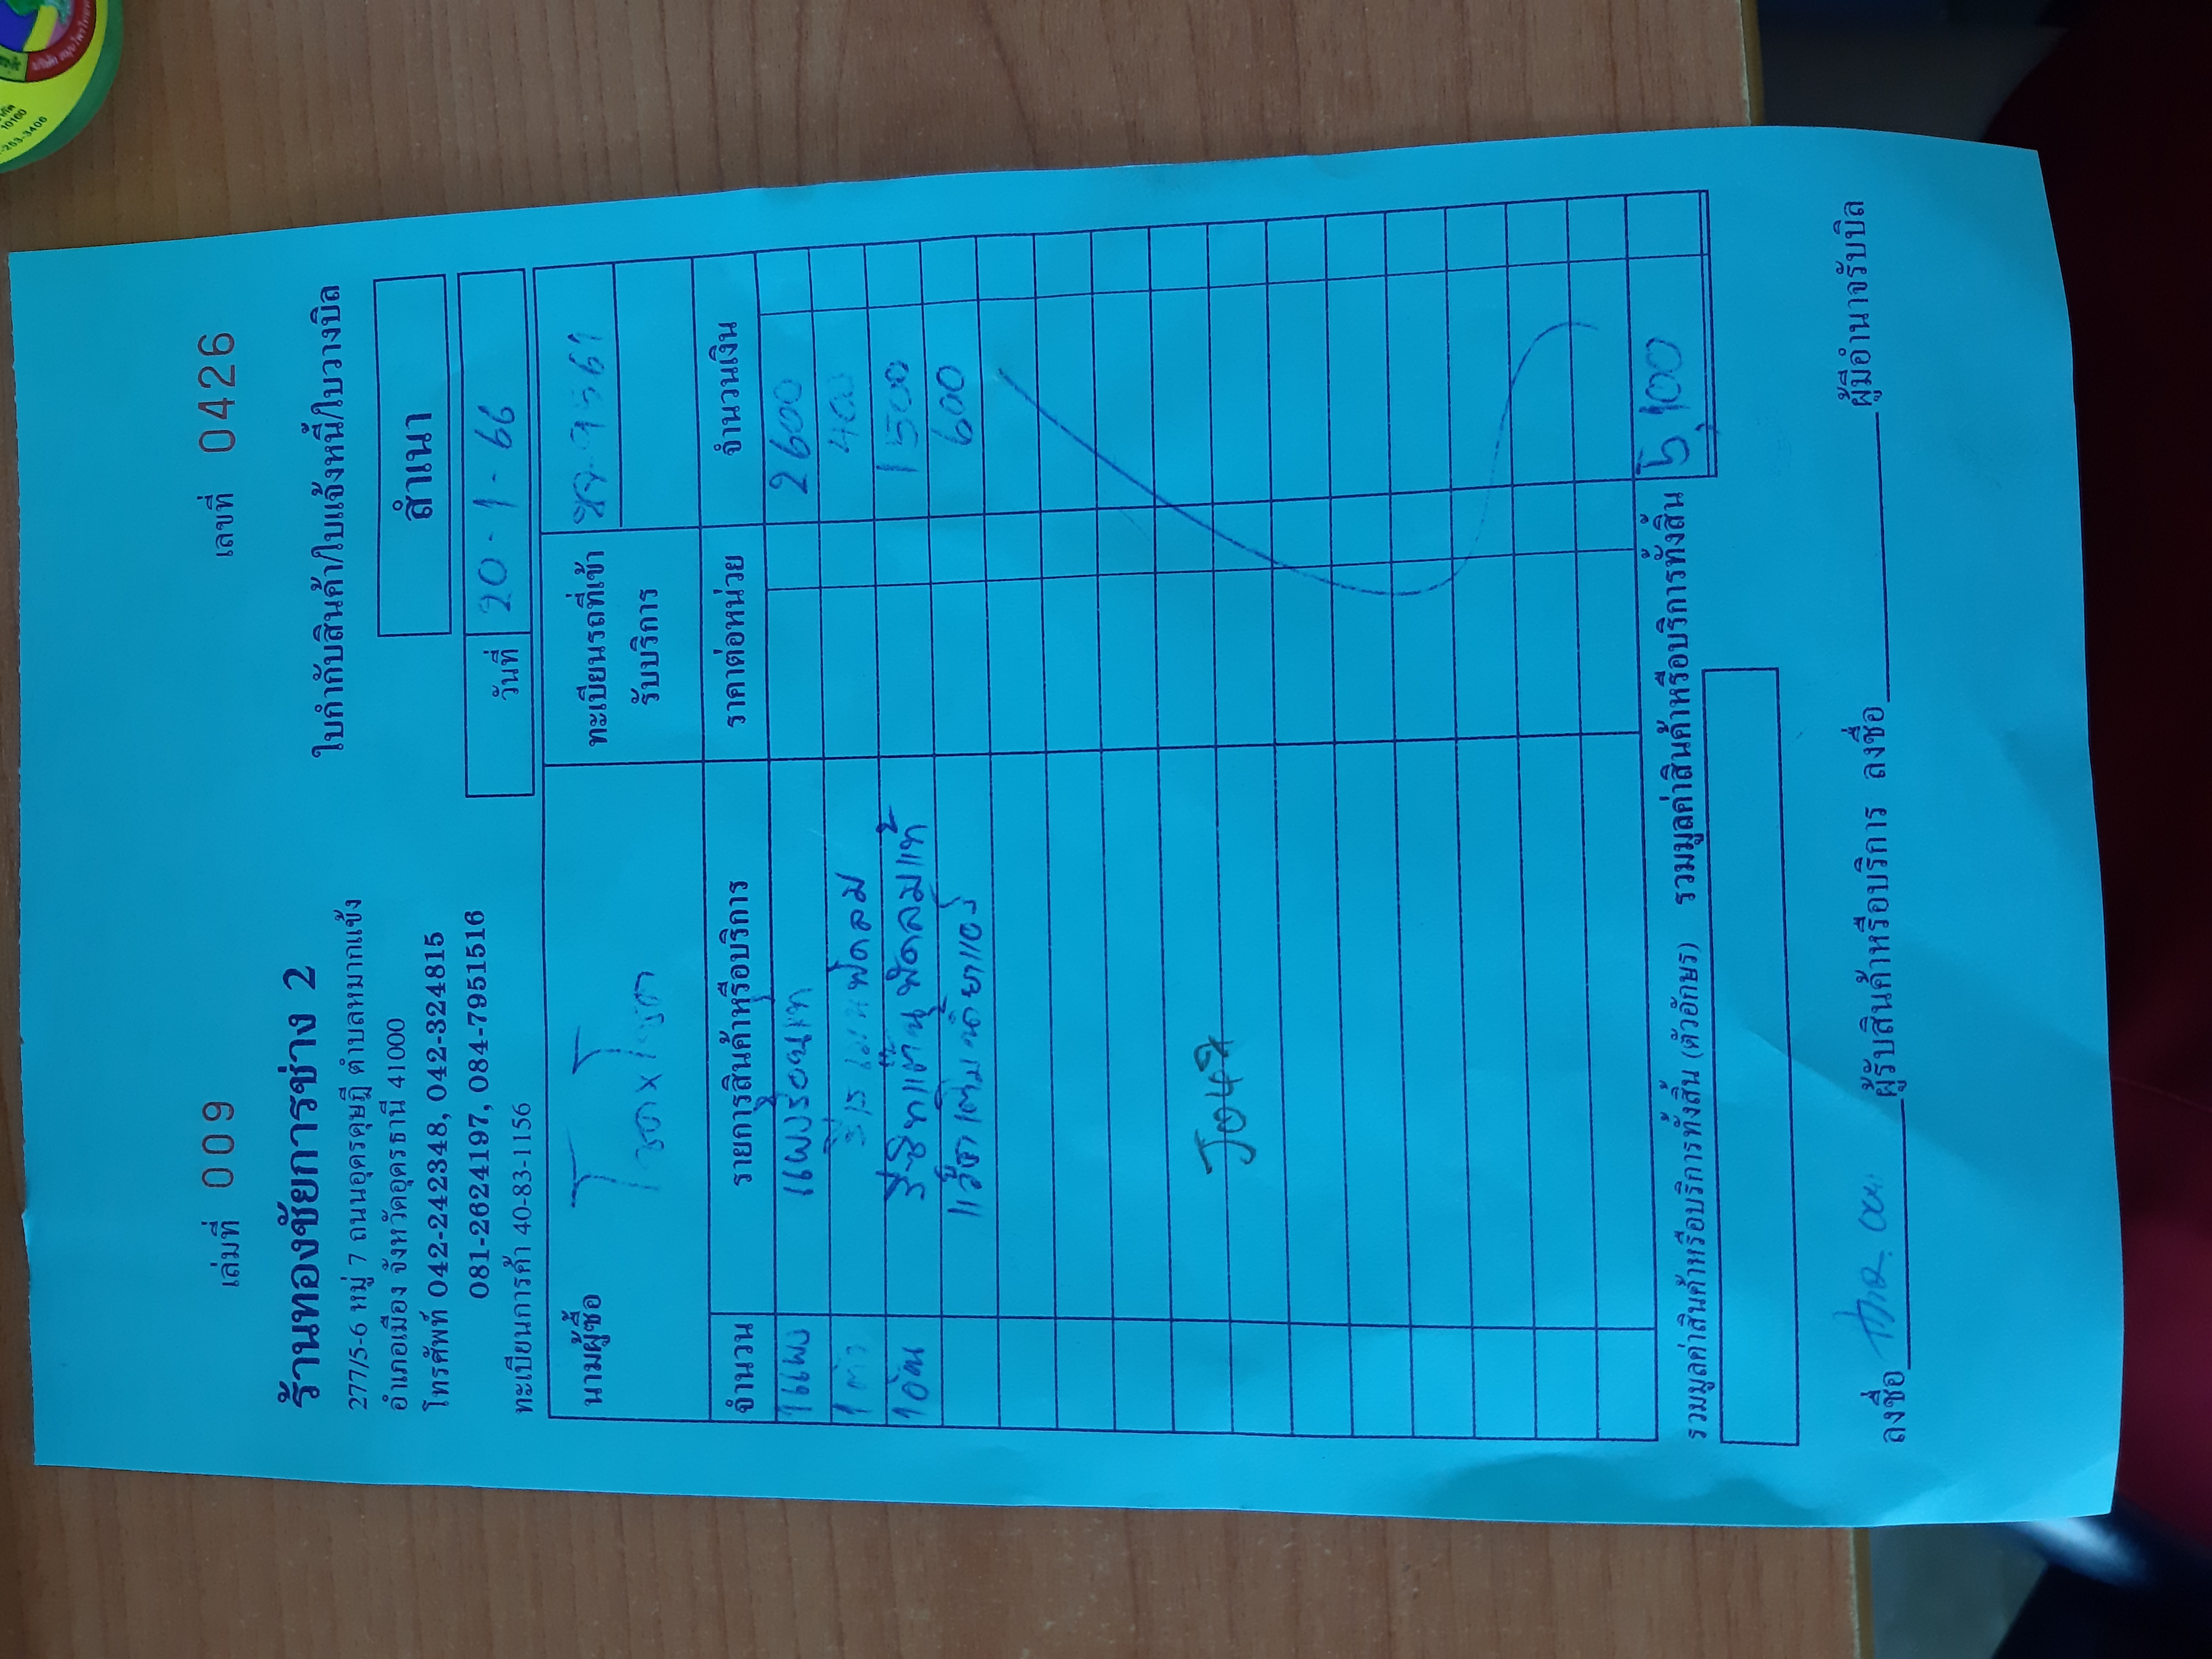 เล่มที่ 009 เลขที่ 0426
ร้านทองชัยการช่าง 2
277/5-6 หมู่ 7 ถนนอุดรดุษฎี ตำบลหมากแข้ง
อำเภอเมือง จังหวัดอุดรธานี 41000
โทรศัพท์ 042-242348, 042-324815
081-2624197, 084-7951516
ทะเบียนการค้า 40-83-1156
ใบกำกับสินค้า/ใบแจ้งหนี้/ใบวางบิล
สำเนา
วันที่ 20-1-66
นามผู้ซื้อ
ทะเบียนรถที่เข้า
รับบริการ
จำนวน รายการสินค้าหรือบริการ ราคาต่อหน่วย จำนวนเงิน
1แผง แผงร้อน 2600
1 ตัว พัดลม 400
1อัน พัดลมแท้ 1500
น้ำยาแอร์ 600
J042
รวมมูลค่าสินค้าหรือบริการทั้งสิ้น (ตัวอักษร) รวมมูลค่าสินค้าหรือบริการทั้งสิ้น 5,100
ลงชื่อ ผู้รับสินค้าหรือบริการ ลงชื่อ ผู้มีอำนาจรับบิล
10160
-253-3406